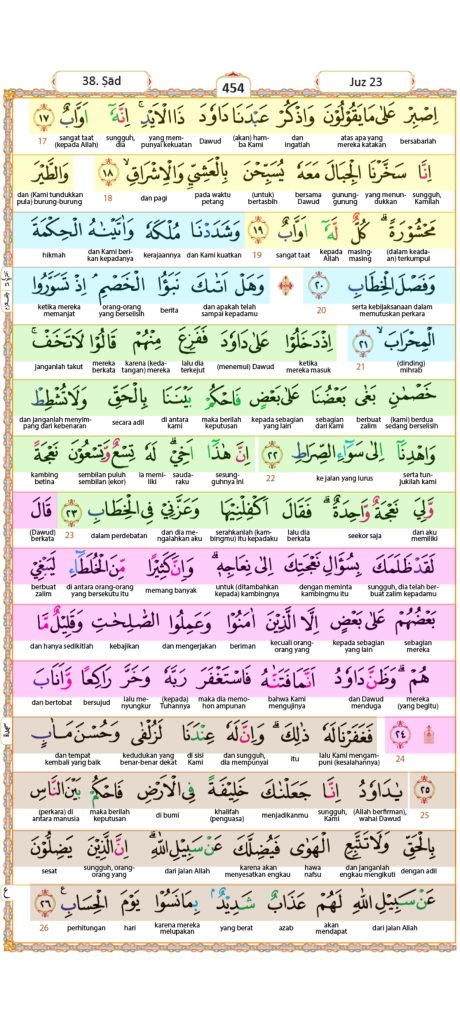 38. Ṣād
454
Juz 23
اِصْبِرْ عَلٰى مَا يَقُوْلُوْنَ وَاذْكُرْ عَبْدَنَا دَاوٗدَ ذَا الْاَيْدِۚ اِنَّهٗٓ اَوَّابٌ ۝١٧
bersabarlah atas apa yang mereka katakan dan ingatlah (akan) hamba Kami Dawud yang mempunyai kekuatan sungguh, dia sangat taat (kepada Allah) 17
اِنَّا سَخَّرْنَا الْجِبَالَ مَعَهٗ يُسَبِّحْنَ بِالْعَشِيِّ وَالْاِشْرَاقِۙ ۝١٨ وَالطَّيْرَ
sungguh, Kami yang menundukkan gunung-gunung bersama Dawud (untuk) bertasbih pada waktu petang dan pagi 18 dan (Kami tundukkan pula) burung-burung
مَحْشُوْرَةًۗ كُلٌّ لَهٗٓ اَوَّابٌ ۝١٩ وَشَدَدْنَا مُلْكَهٗ وَاٰتَيْنٰهُ الْحِكْمَةَ
(dalam keadaan) terkumpul masing-masing kepada Allah sangat taat 19 dan Kami kuatkan kerajaannya dan Kami berikan kepadanya hikmah
وَفَصْلَ الْخِطَابِ ۝٢٠ وَهَلْ اَتٰىكَ نَبَؤُا الْخَصْمِۘ اِذْ تَسَوَّرُوا
serta kebijaksanaan dalam memutuskan perkara 20 dan apakah telah sampai kepadamu berita orang-orang yang berselisih ketika mereka memanjat
الْمِحْرَابَۙ ۝٢١ اِذْ دَخَلُوْا عَلٰى دَاوٗدَ فَفَزِعَ مِنْهُمْ قَالُوْا لَا تَخَفْۚ
(dinding) mihrab 21 ketika mereka masuk (menemui) Dawud lalu dia terkejut karena (kedatangan) mereka mereka berkata janganlah takut
خَصْمٰنِ بَغٰى بَعْضُنَا عَلٰى بَعْضٍ فَاحْكُمْ بَيْنَنَا بِالْحَقِّ وَلَا تُشْطِطْ
(kami) berdua sedang berselisih berbuat zalim sebagian dari Kami kepada sebagian yang lain maka berilah keputusan di antara kami secara adil dan janganlah menyimpang dari kebenaran
وَاهْدِنَآ اِلٰى سَوَاۤءِ الصِّرَاطِ ۝٢٢ اِنَّ هٰذَآ اَخِيْۗ لَهٗ تِسْعٌ وَّتِسْعُوْنَ نَعْجَةً
serta tunjukilah kami ke jalan yang lurus 22 sesungguhnya ini saudaraku ia memiliki sembilan puluh sembilan (ekor) kambing betina
وَّلِيَ نَعْجَةٌ وَّاحِدَةٌۗ فَقَالَ اَكْفِلْنِيْهَا وَعَزَّنِيْ فِى الْخِطَابِ ۝٢٣ قَالَ
dan aku memiliki seekor saja lalu dia berkata serahkanlah (kambingmu) itu kepadaku dan dia mengalahkan aku dalam perdebatan 23 (Dawud) berkata
لَقَدْ ظَلَمَكَ بِسُؤَالِ نَعْجَتِكَ اِلٰى نِعَاجِهٖۗ وَاِنَّ كَثِيْرًا مِّنَ الْخُلَطَاۤءِ لَيَبْغِيْ
sungguh, dia telah berbuat zalim kepadamu dengan meminta kambingmu itu untuk (ditambahkan kepada) kambingnya memang banyak di antara orang-orang yang bersekutu itu berbuat zalim
بَعْضُهُمْ عَلٰى بَعْضٍ اِلَّا الَّذِيْنَ اٰمَنُوْا وَعَمِلُوا الصّٰلِحٰتِ وَقَلِيْلٌ مَّا
sebagian mereka kepada sebagian yang lain kecuali orang-orang yang beriman dan mengerjakan kebajikan dan hanya sedikitlah
هُمْۗ وَظَنَّ دَاوٗدُ اَنَّمَا فَتَنّٰهُ فَاسْتَغْفَرَ رَبَّهٗ وَخَرَّ رَاكِعًا وَّاَنَابَ
mereka (yang begitu) dan Dawud menduga bahwa Kami mengujinya maka dia memohon ampunan (kepada) Tuhannya lalu menyungkur bersujud dan bertobat
۝٢٤ فَغَفَرْنَا لَهٗ ذٰلِكَۗ وَاِنَّ لَهٗ عِنْدَنَا لَزُلْفٰى وَحُسْنَ مَاٰبٍ
24 lalu Kami mengampuni (kesalahannya) itu dan sungguh, dia mempunyai di sisi Kami kedudukan yang benar-benar dekat dan tempat kembali yang baik
۝٢٥ يٰدَاوٗدُ اِنَّا جَعَلْنٰكَ خَلِيْفَةً فِى الْاَرْضِ فَاحْكُمْ بَيْنَ النَّاسِ
25 (Allah berfirman), wahai Dawud sungguh, Kami menjadikanmu khalifah (penguasa) di bumi maka berilah keputusan (perkara) di antara manusia
بِالْحَقِّ وَلَا تَتَّبِعِ الْهَوٰى فَيُضِلَّكَ عَنْ سَبِيْلِ اللّٰهِۗ اِنَّ الَّذِيْنَ يَضِلُّوْنَ
dengan adil dan janganlah engkau mengikuti hawa nafsu karena akan menyesatkan engkau dari jalan Allah sungguh, orang-orang yang sesat
عَنْ سَبِيْلِ اللّٰهِ لَهُمْ عَذَابٌ شَدِيْدٌۢ بِمَا نَسُوْا يَوْمَ الْحِسَابِ ۝٢٦
dari jalan Allah akan mendapat azab yang berat karena mereka melupakan hari perhitungan 26
ع